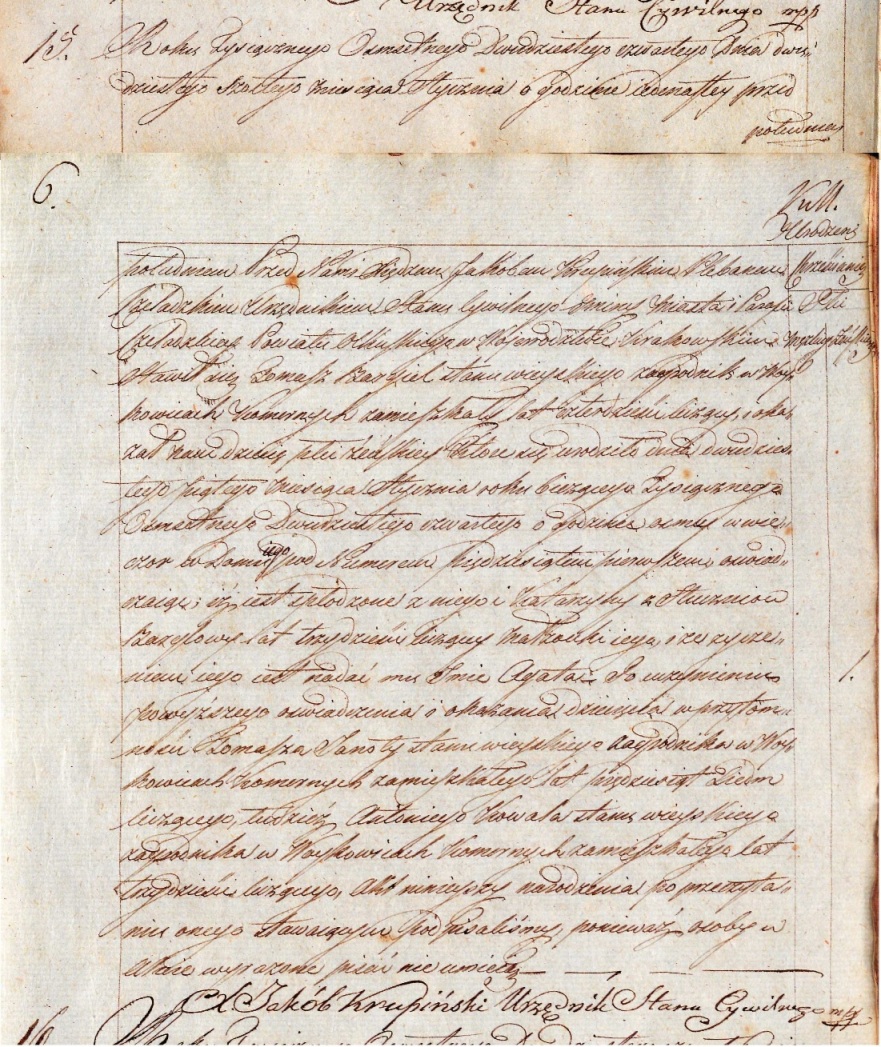 Urzędnik Stanu Cywilnego mpp
15. Roku Tysiącznego Osmsetnego Dwudziestego czwartego Dnia dwu
dziestego szostego Miesiąca Stycznia o godzinie iedenastey przed
południem
6.
południem Przed Nami Xiędzem Jakóbem Krupińskim Plebanem
Czeladzkim Urzędnikiem Stanu Cywilnego Gminy Miasta i Parafii
Czeladzkiey Powiatu Olkuskiego w Wojewodztwie Krakowskim
Stawił się Tomasz Bargieł stanu wieyskiego zagrodnik w Woy
kowicach Komornych zamieszkały lat czterdzieści liczący, i oka
zał nam dziecię płci żeńskiey które się urodziło dnia dwudzies
tego piątego Miesiąca Stycznia roku bieżącego Tysiącznego
Osmsetnego Dwudziestego czwartego o godzinie osmey w wie
czor w Domu iego pod Numerem pięćdziesiątem pierwszem oswiad
czaiąc; iż iest spłodzone z niego i Katarzyny z
lat trzydzieści liczącey Małżonki iego, i że życze
niem iego iest nadać mu Imie Agata. Po uczynieniu
powyższego oswiadczenia i okazania dziecięcia w przytom
ności Tomasza Janoty stanu wieyskiego zagrodnika w Woy
kowicach Komornych zamieszkałego lat pięćdziesiąt Siedm
liczącego, tudzież Antoniego Kowala stanu wieyskiego
zagrodnika w Woykowicach Komornych zamieszkałego lat
trzydzieści liczącego, Akt ninieyszy narodzenia po przeczyta
niu onego stawaiącym Podpisaliśmy, ponieważ osoby w
Akcie wyrażone pisać nie umieią
X. Jakób Krupiński Urzędnik Stanu Cywilnego mpp
16.
Urodzenia
Płci
1.